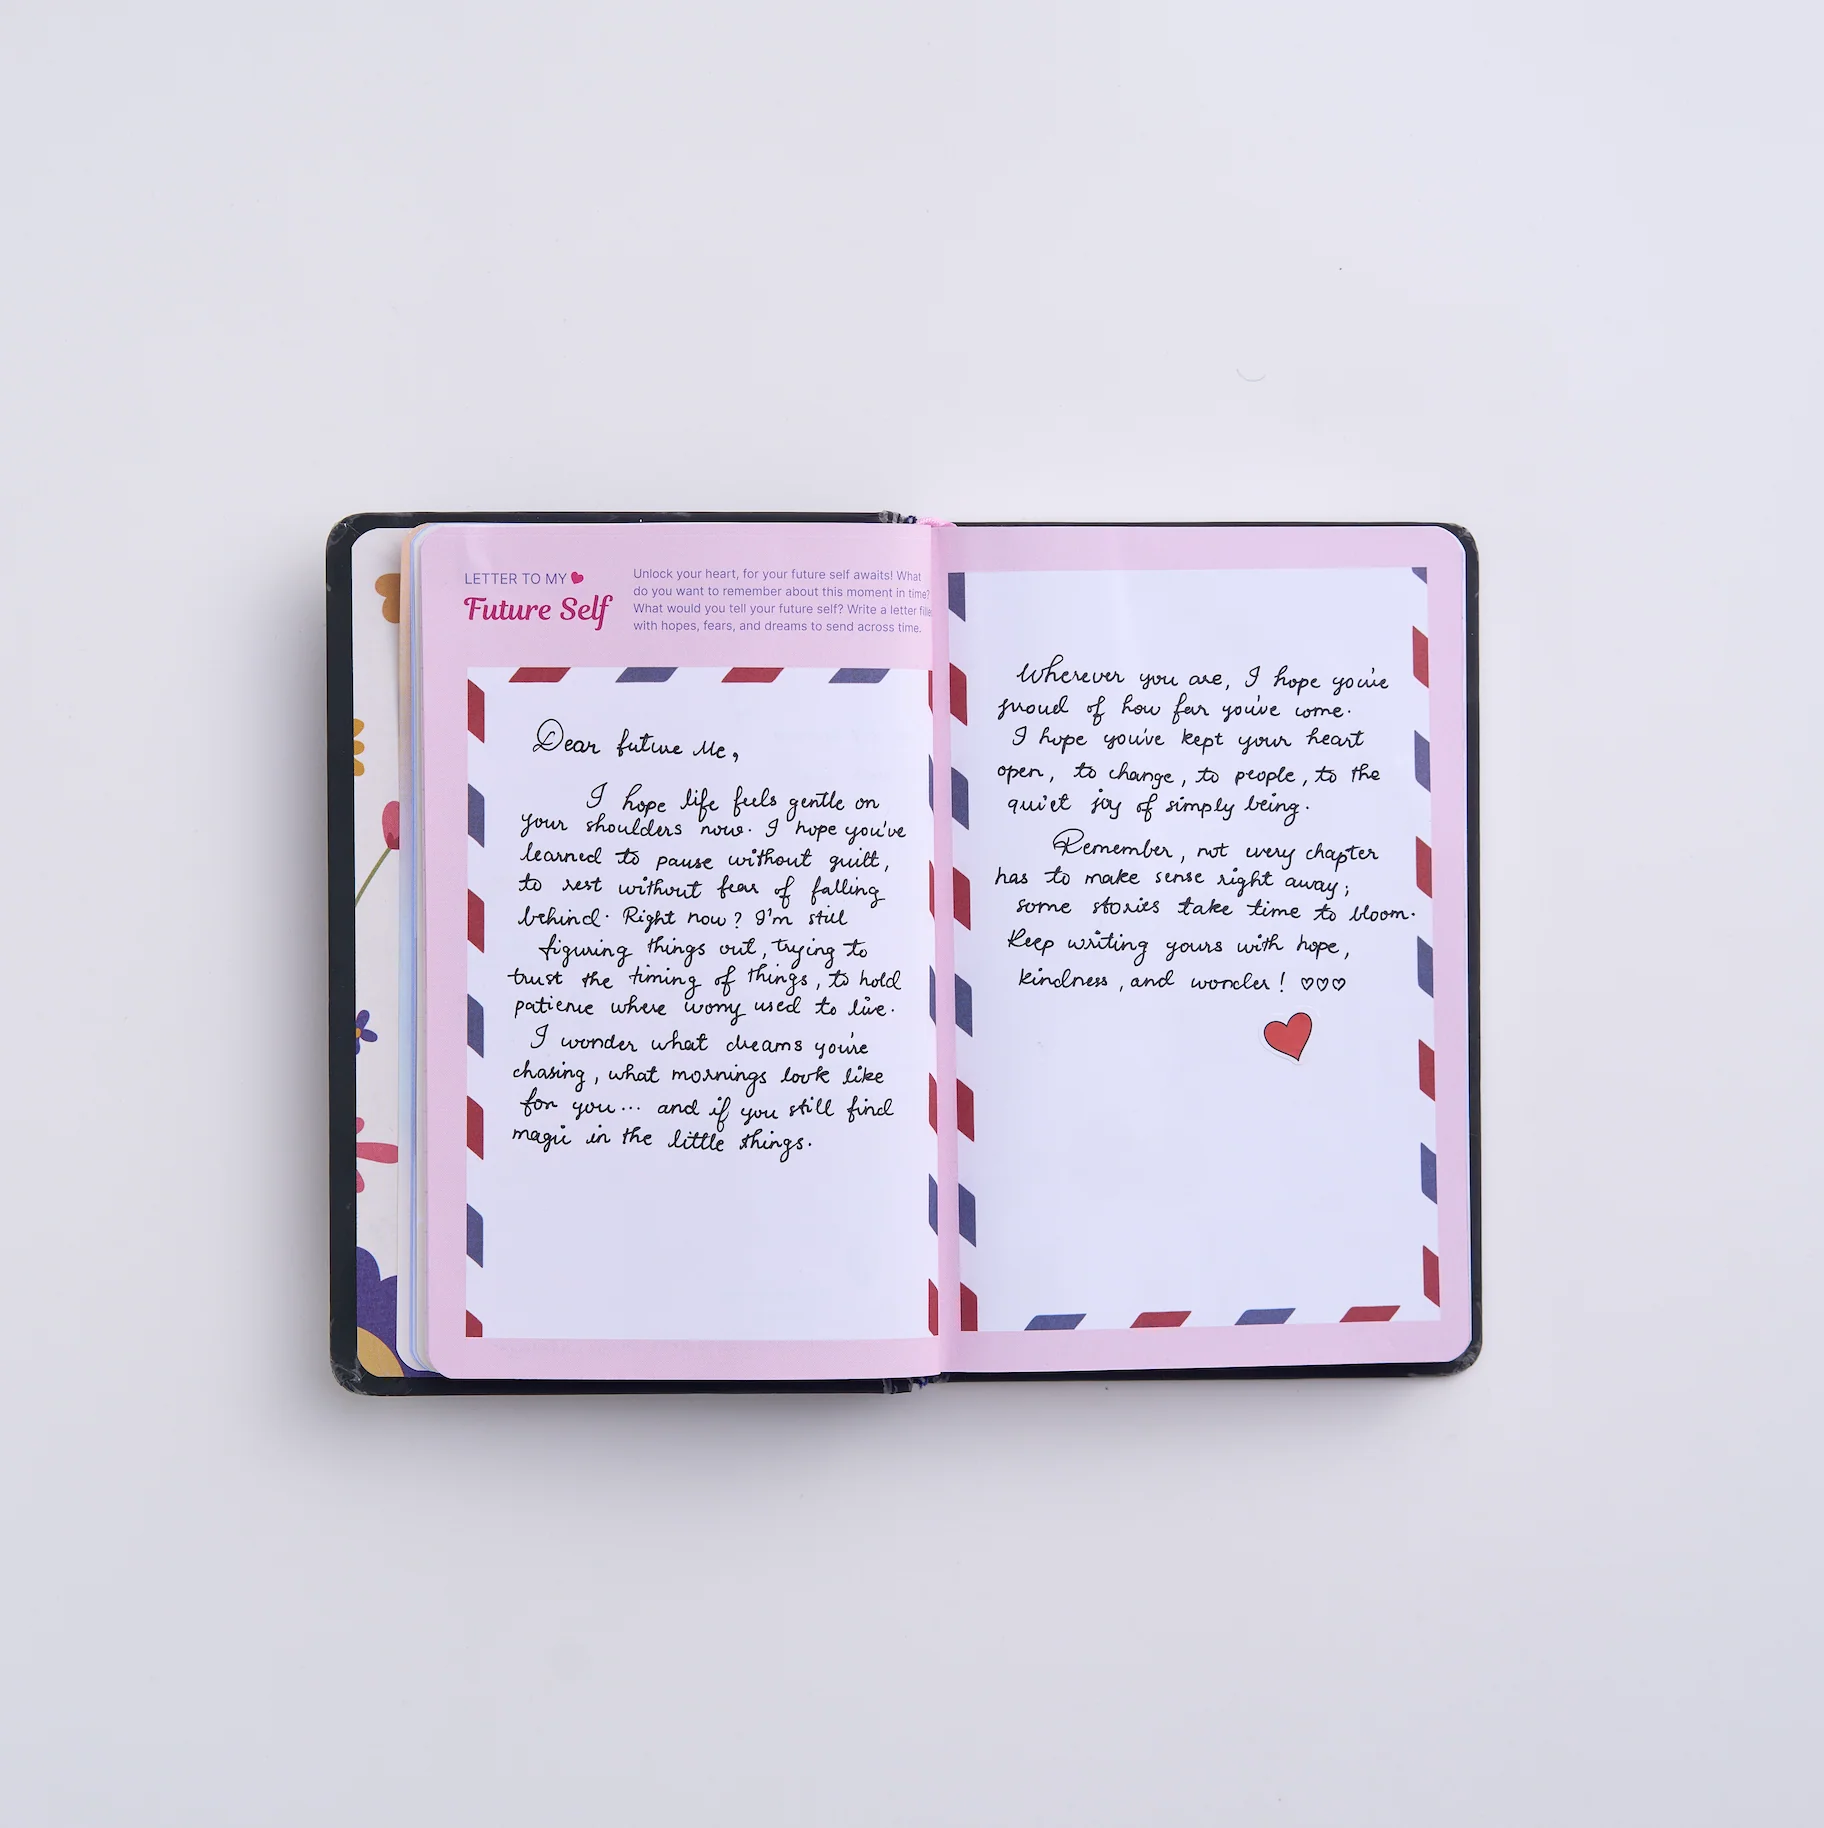 LETTER TO MY
Future Self
Unlock your heart, for your future self awaits! What
do you want to remember about this moment in time?
What would you tell your future self? Write a letter fille
with hopes, fears, and dreams to send across time.
Dear future Me,
I hope life feels gentle on
your shoulders now. I hope you've
learned to pause without guilt,
to rest without fear of falling
behind. Right now? I'm still
figuring things out, trying to
trust the timing of things, to hold
patience where worry used to live.
I wonder what dreams you're
chasing, what mornings look like
for you... and if you still find
magic in the little things.
Wherever you are, I hope you're
proud of how far you've come.
I hope you've kept your heart
open, to change, to people, to the
quiet joy of simply being.
Remember, not every chapter
has to make sense right away;
some stories take time to bloom.
Keep writing yours with hope,
kindness, and wonder! ♡♡♡